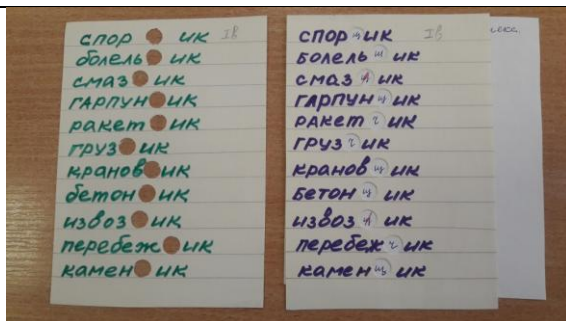 спор ик IВ
болель ик
смаз ик
гарпун ик
ракет ик
груз ик
кранов ик
бетон ик
извоз ик
перебеж ик
камен ик
спорщик IВ
болельщик
смазчик
гарпунщик
ракетчик
грузчик
крановщик
бетонщик
извозчик
перебежчик
каменщик